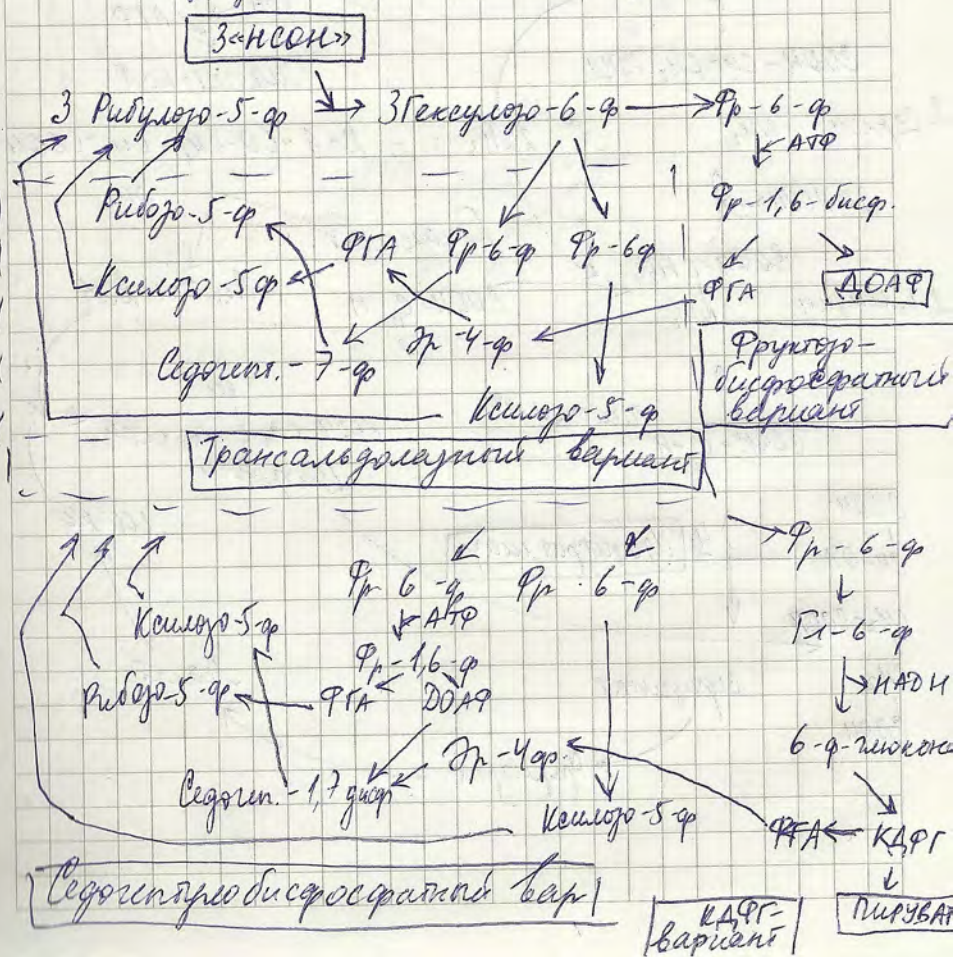 3«НСОН»
3 Рибулозо-5-ф → 3Гексулозо-6-ф → Фр-6-ф
АТФ
Рибозо-5-ф
Фр-1,6-бисф.
ФГА Фр-6-ф Фр-6ф
Ксилозо-5ф
ФГА ДОАФ
Седогепт.-7-ф Эр-4-ф
Фруктозо-
бисфосфатный
вариант
Ксилозо-5-ф
Трансальдолазный вариант
Фр-6-ф
Фр-6-ф Фр-6-ф
АТФ
Ксилозо-5-ф
Гл-6-ф
Фр-1,6-ф
Рибозо-5-ф ФГА ДОАФ
НАДН
6-ф-глюкона
Эр-4ф
Седогеп.-1,7дисф
Ксилозо-5-ф
ФГА КДФГ
Седогептулобисфосфатный вар
КДФГ-
вариант
ПИРУВАТ